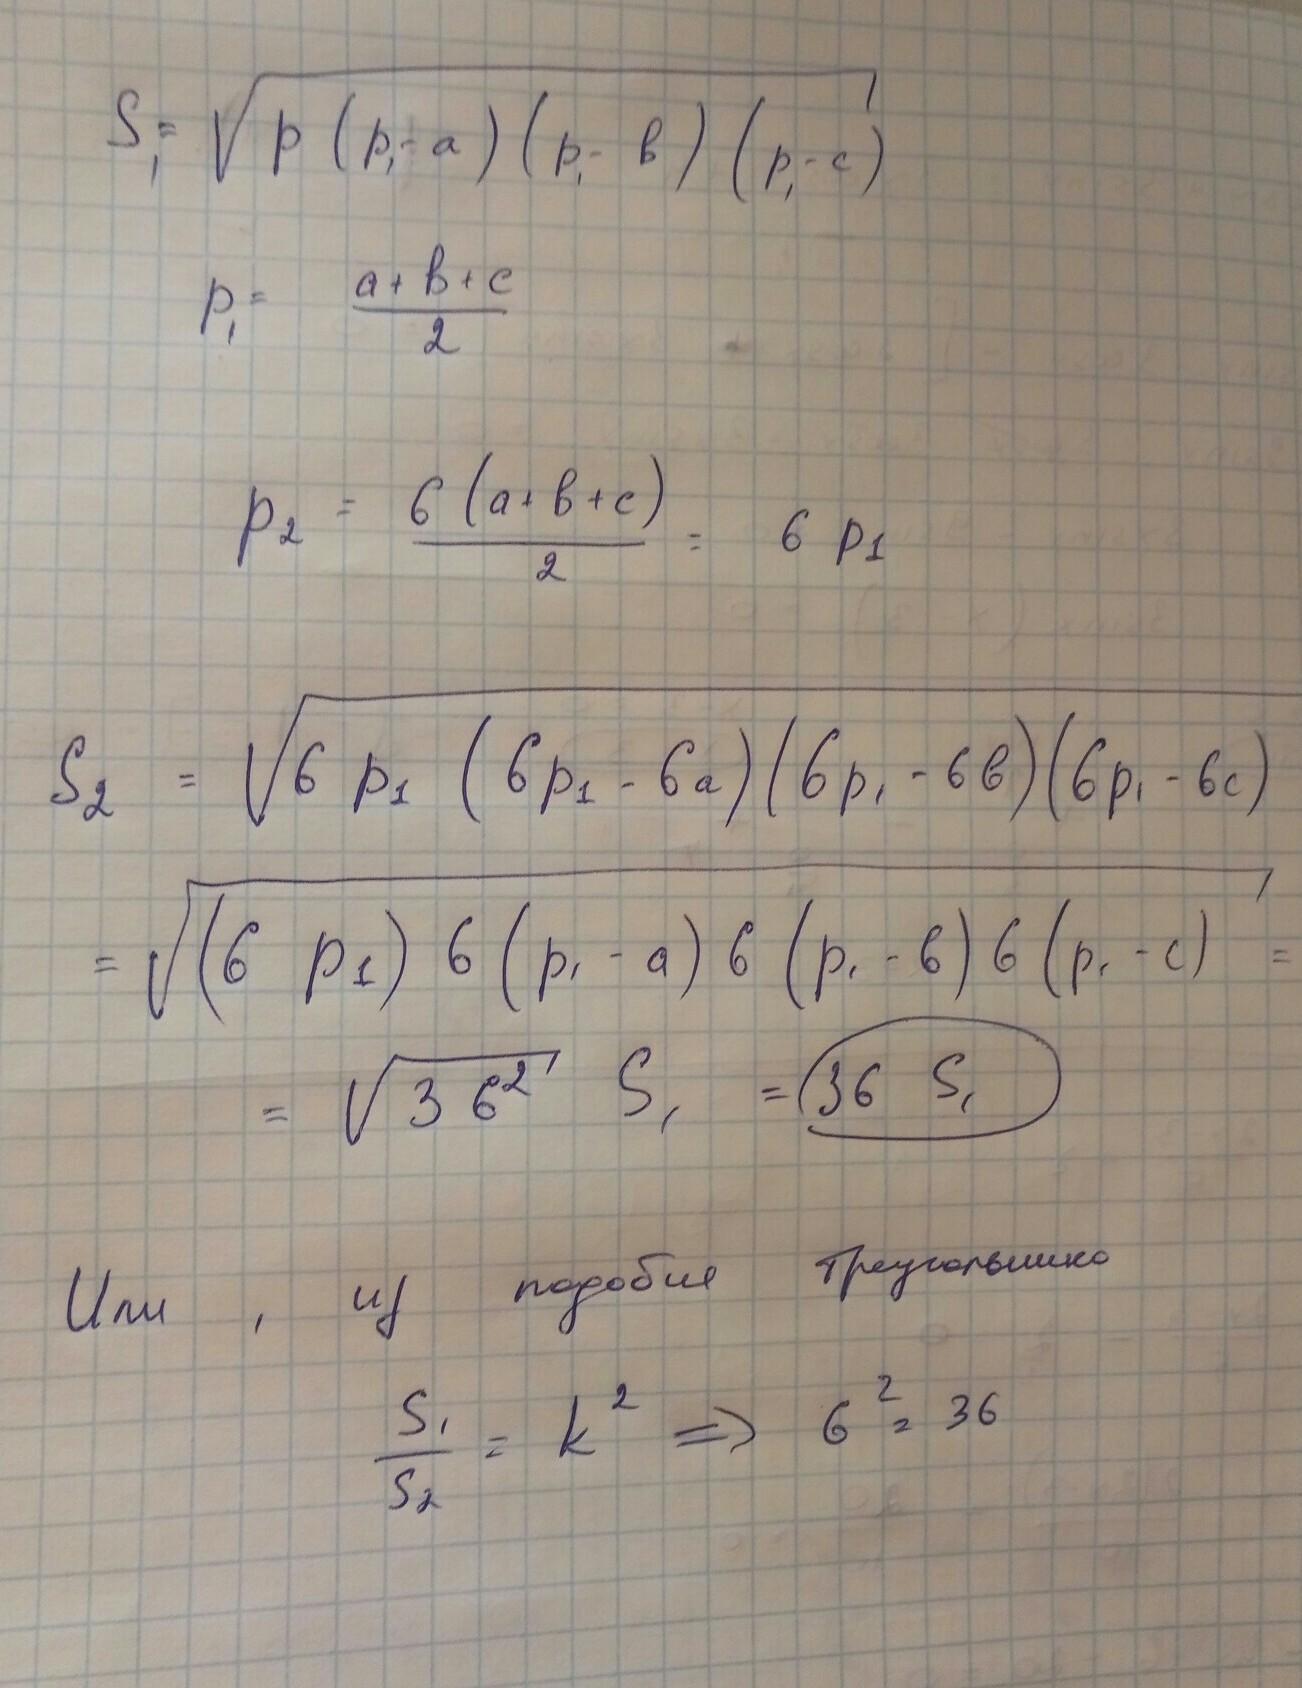 S₁ = √(p (p₁ - a) (p₁ - в) (p₁ - c))
p₁ = (a + в + c) / 2
p₂ = 6 (a + в + c) / 2 = 6 p₁
S₂ = √(6 p₁ (6p₁ - 6a) (6p₁ - 6в) (6p₁ - 6c))
= √((6 p₁) 6 (p₁ - a) 6 (p₁ - в) 6 (p₁ - c)) =
= √(36²) S₁ = 36 S₁
Или , из подобия треугольника
S₁ / S₂ = k² => 6² = 36